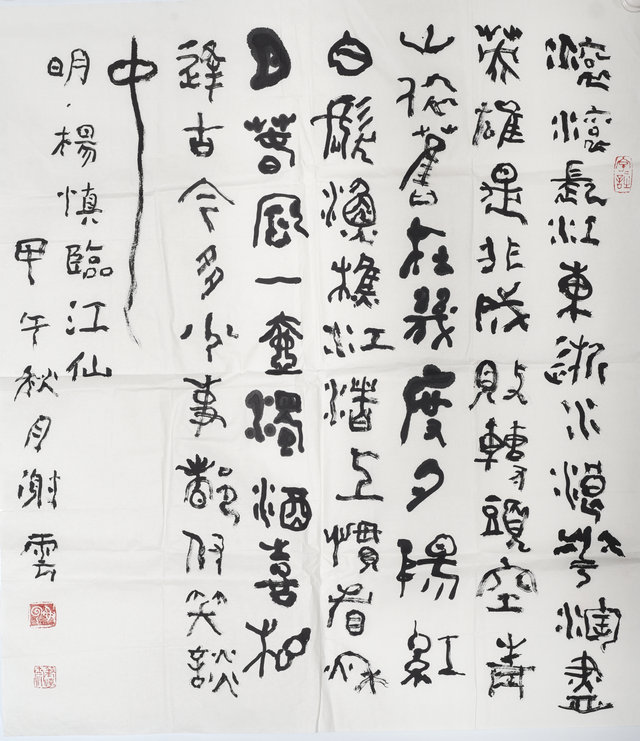 滾滾長江東逝水浪花淘盡
英雄是非成敗轉頭空青
山依舊在幾度夕陽紅
白髮漁樵江渚上慣看秋
月春風一壺濁酒喜相
逢古今多少事都付笑談
中
明·楊慎臨江仙
甲午秋月謝雲